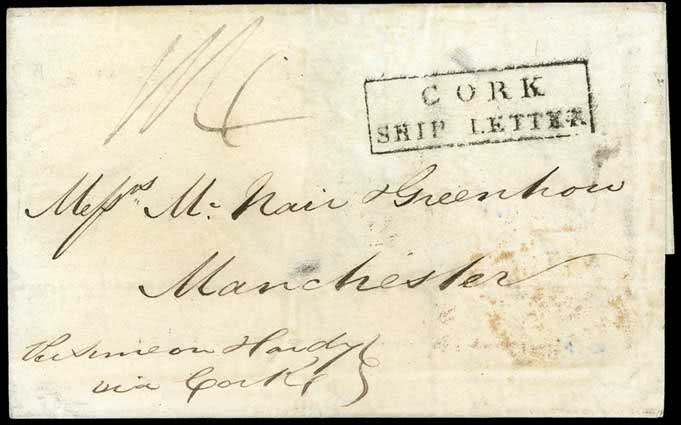 CORK
SHIP LETTER
Messrs Mc Nair Greenhow
Manchester
Per Simeon Hardy
via Cork